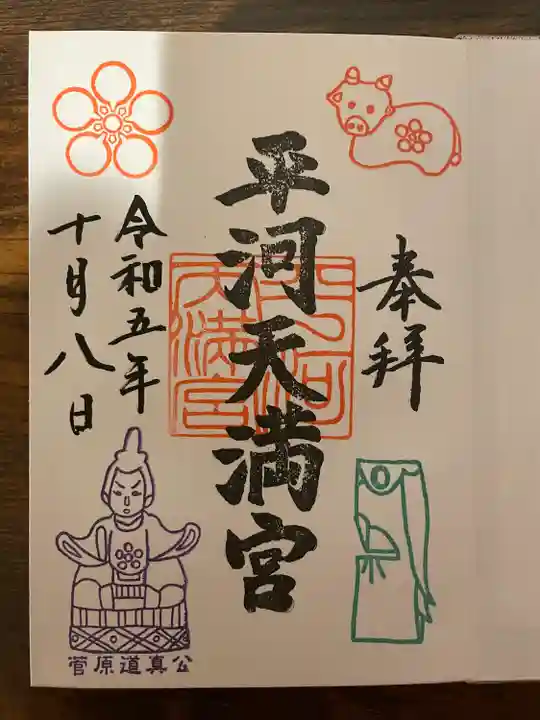 奉拝
平河天満宮
平河
天満宮
令和五年
十月八日
菅原道真公